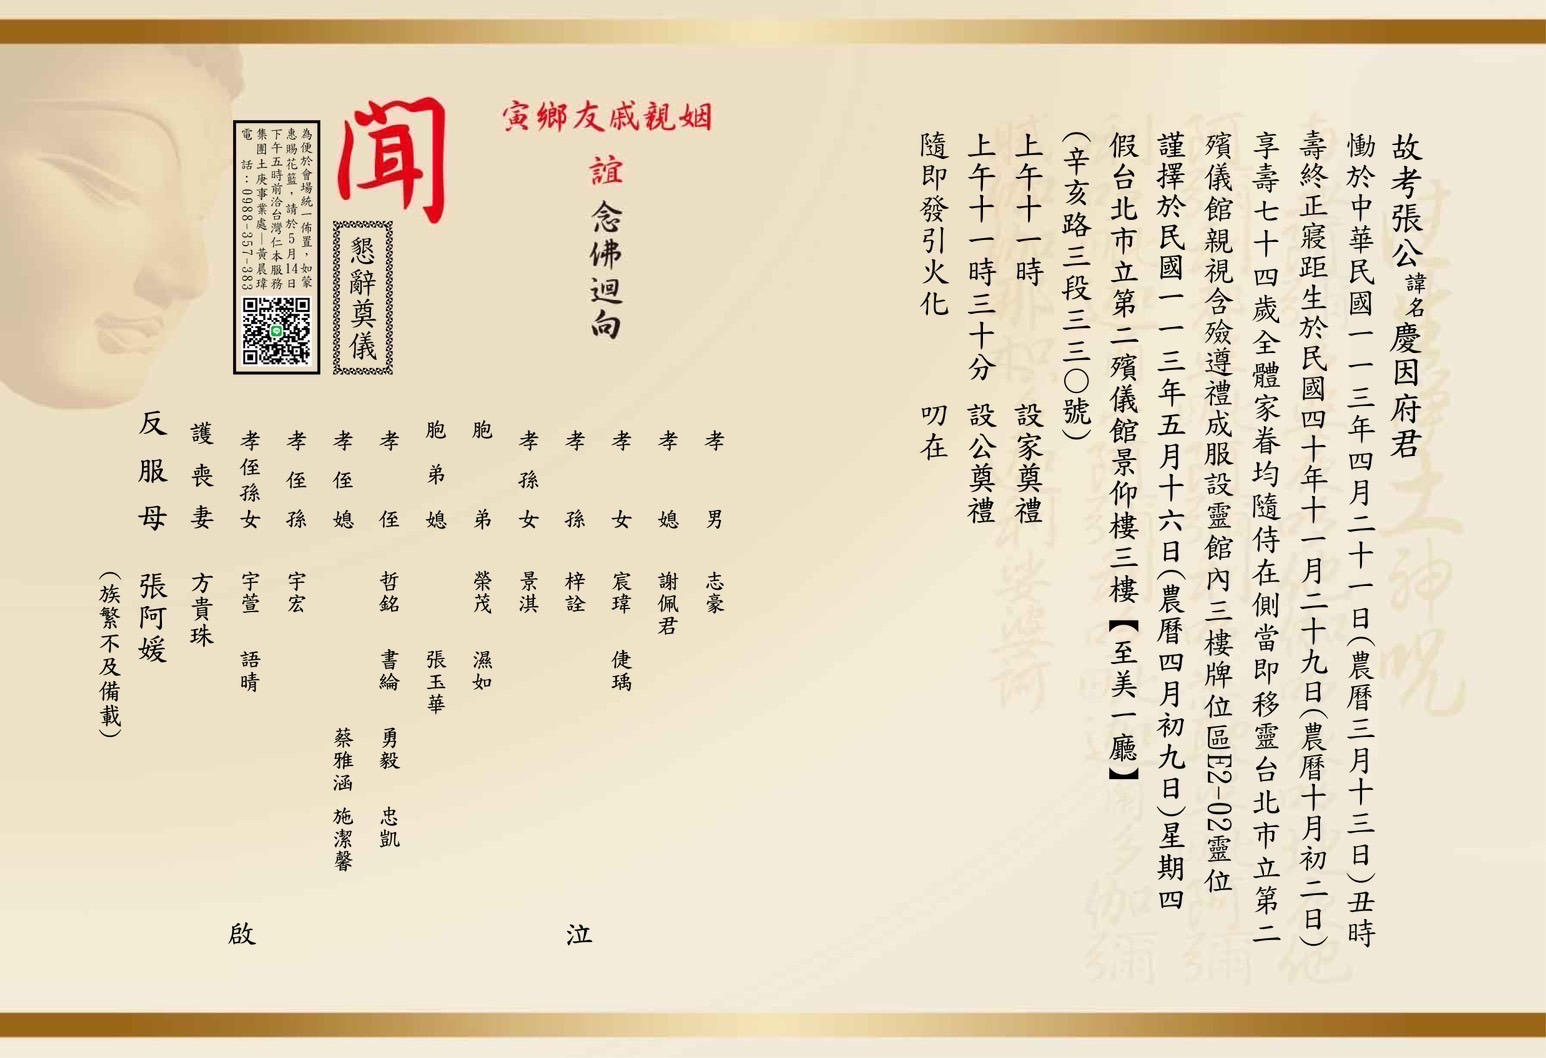 故考張公諱名慶因府君
慟於中華民國一一三年四月二十一日(農曆三月十三日)丑時
壽終正寢距生於民國四十年十一月二十九日(農曆十月初二日)
享壽七十四歲全體家眷均隨侍在側當即移靈台北市立第二
殯儀館親視含殮遵禮成服設靈館內三樓牌位區E2-02靈位
謹擇於民國一一三年五月十六日(農曆四月初九日)星期四
假台北市立第二殯儀館景仰樓三樓【至美一廳】
(辛亥路三段三三〇號)
上午十一時 設家奠禮
上午十一時三十分 設公奠禮
隨即發引火化 叨在
姻親戚友鄉寅
誼
念佛迴向
聞
懇辭奠儀
為便於會場統一佈置，如蒙
惠賜花籃，請於5月14日
下午五時前洽台灣仁本服務
集團土庚事業處—黃晨瑋
電 話：0988-357-383
孝男 志豪
孝媳 謝佩君
孝女 宸瑋 倢瑀
孝孫 梓詮
孝孫女 景淇
胞弟 榮茂 濕如
胞弟媳 張玉華
孝侄 哲銘 書綸 勇毅 忠凱
孝侄媳 蔡雅涵 施潔馨
孝侄孫 宇宏
孝侄孫女 宇萱 語晴
護喪妻 方貴珠
反服母 張阿媛
(族繁不及備載)
泣
啟